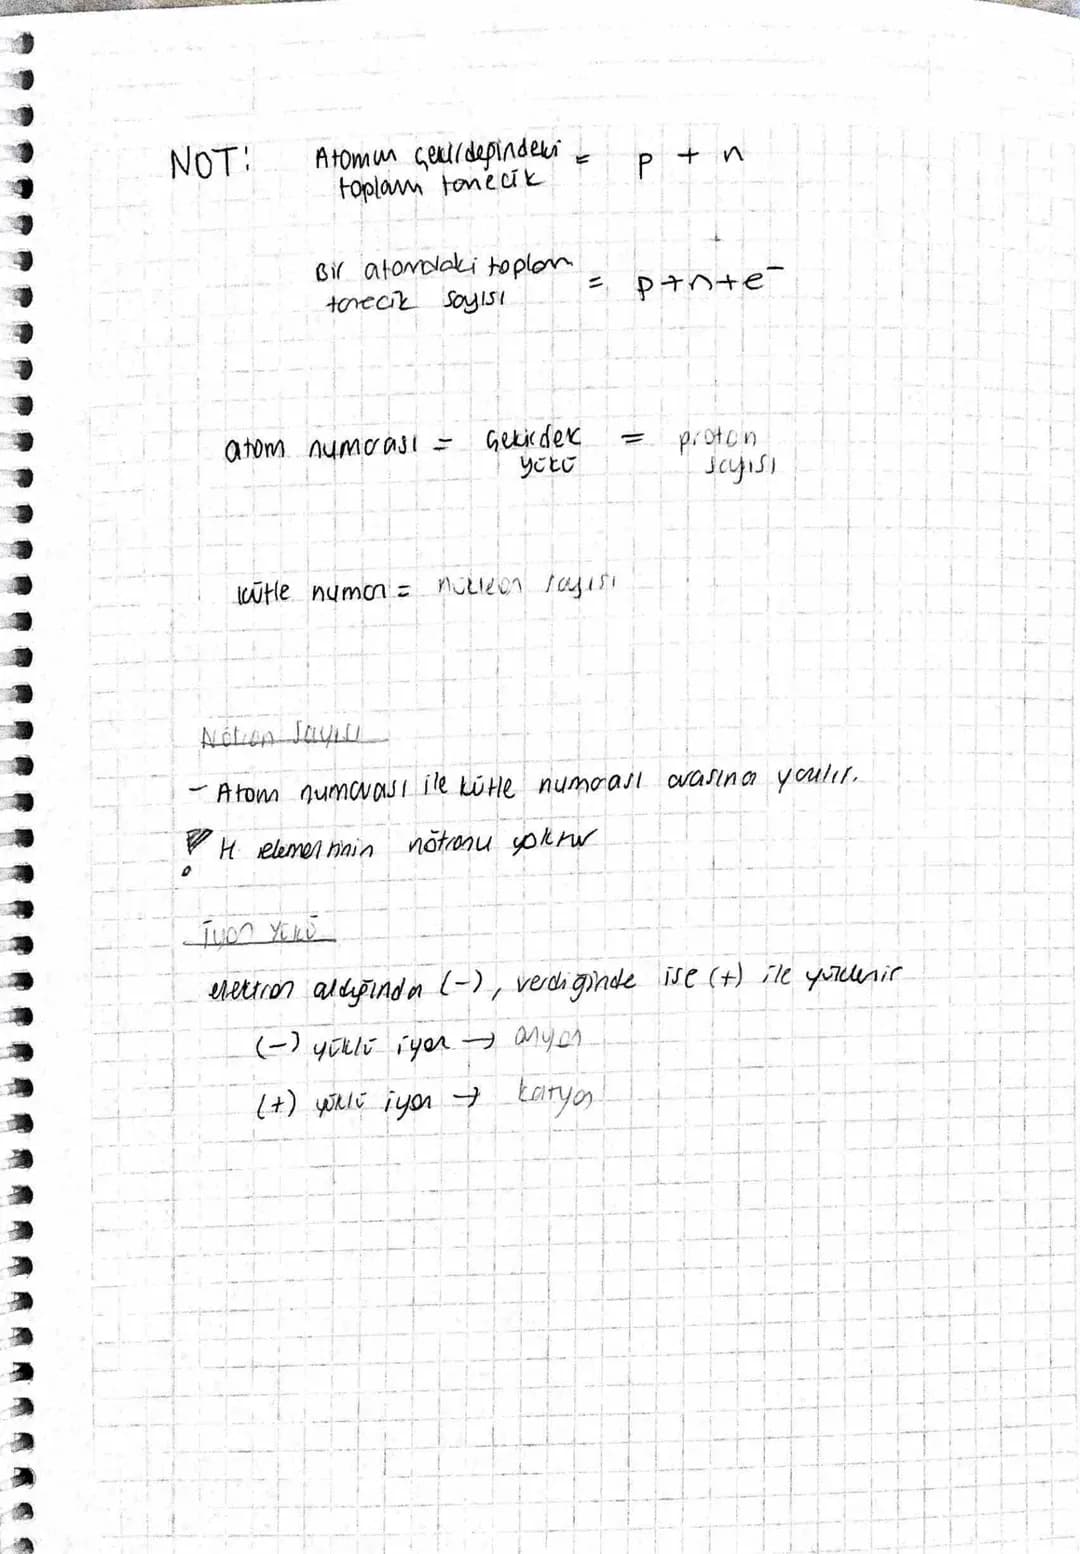 NOT: Atomun çekirdeğindeki = p + n
toplam tanecik
Bir atomdaki toplam = p+n+e⁻
tanecik sayısı
atom numarası = Çekirdek = proton
yükü sayısı
kütle numar = nükleon sayısı
Nötron Sayısı
- Atom numarası ile kütle numarası arasına yazılır.
! H elementinin nötronu yoktur
İyon Yükü
elektron aldığında (-), verdiğinde ise (+) ile yüklenir
(-) yüklü iyon → anyon
(+) yüklü iyon → katyon